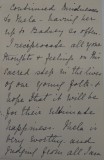 continued kindness
to Perla. having her
up to Dudley so often
I reciprocate all your
thoughts & feelings on the
sacred step in the lives
of our young folk. &
hope that it will be
for their ultimate
happiness. Perla is
very worthy. and
judging from all I